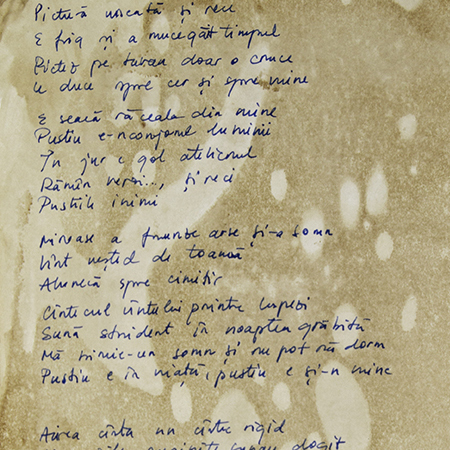 Pictură uscată și rece
E frig și a mucegăit timpul
Pictez pe tavan doar o cruce
Ce duce spre cer și spre mine
E seacă răceala din mine
Pustiu e-nconjurul luminii
În jur e gol atelierul
Rămîn versi..., și reci
Pustiile inimii
Miroase a frunze arse și-a somn
Vînt veșted de toamnă
Alunecă spre cimitir
Cîntecul vîntului printre lespezi
Sună strident în noaptea grăbită
Mă simt-un somn și nu pot să dorm
Pustiu e în viață, pustiu e și-n mine
Aiurea cînta un cîntec rigid
dogit